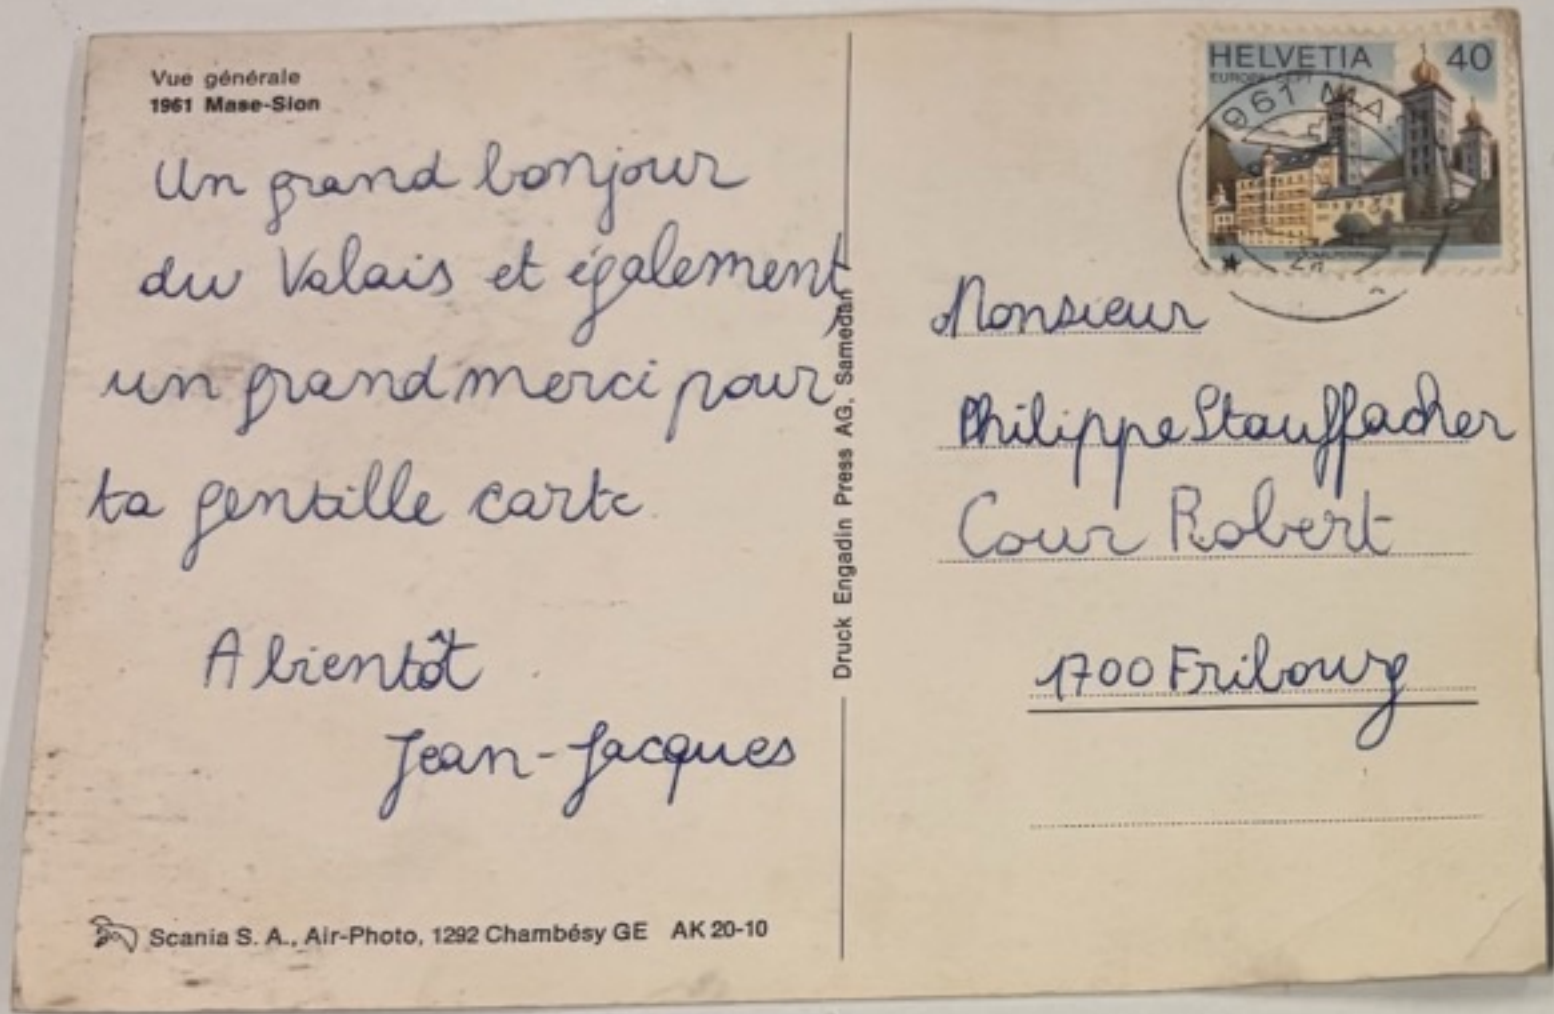 Vue générale
1961 Mase-Sion
Un grand bonjour
du Valais et également
un grand merci pour
ta gentille carte.
A bientôt
Jean-Jacques
Scania S. A., Air-Photo, 1292 Chambésy GE AK 20-10
Druck Engadin Press AG, Samedan
HELVETIA 40
EUROPA
1961 MA
Monsieur
Philippe Stauffacher
Cour Robert
1700 Fribourg